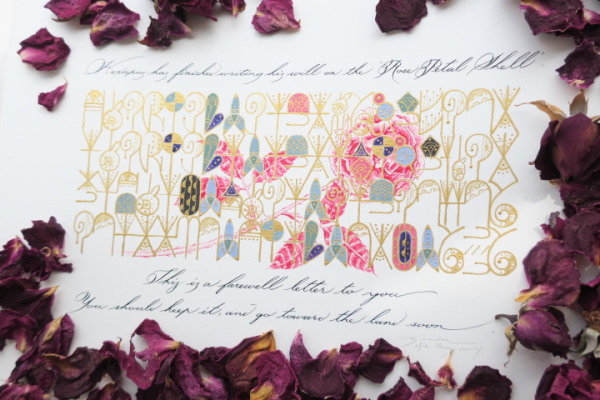 has finished writing his will on the "Rose Petal Shell".
This is a farewell letter to you
You should keep it, and go toward the land soon